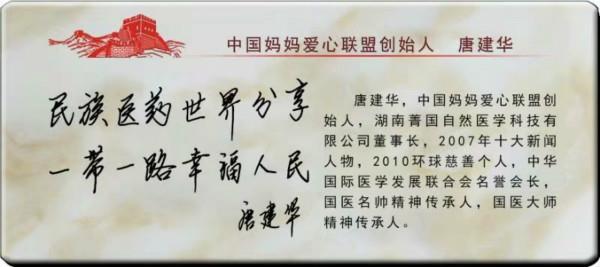 中国妈妈爱心联盟创始人 唐建华
民族医药世界分享
一带一路幸福人民
唐建华
唐建华，中国妈妈爱心联盟创
始人，湖南菁国自然医学科技有
限公司董事长，2007年十大新闻
人物，2010环球慈善个人，中华
国际医学发展联合会名誉会长，
国医名帅精神传承人，国医大师
精神传承人。